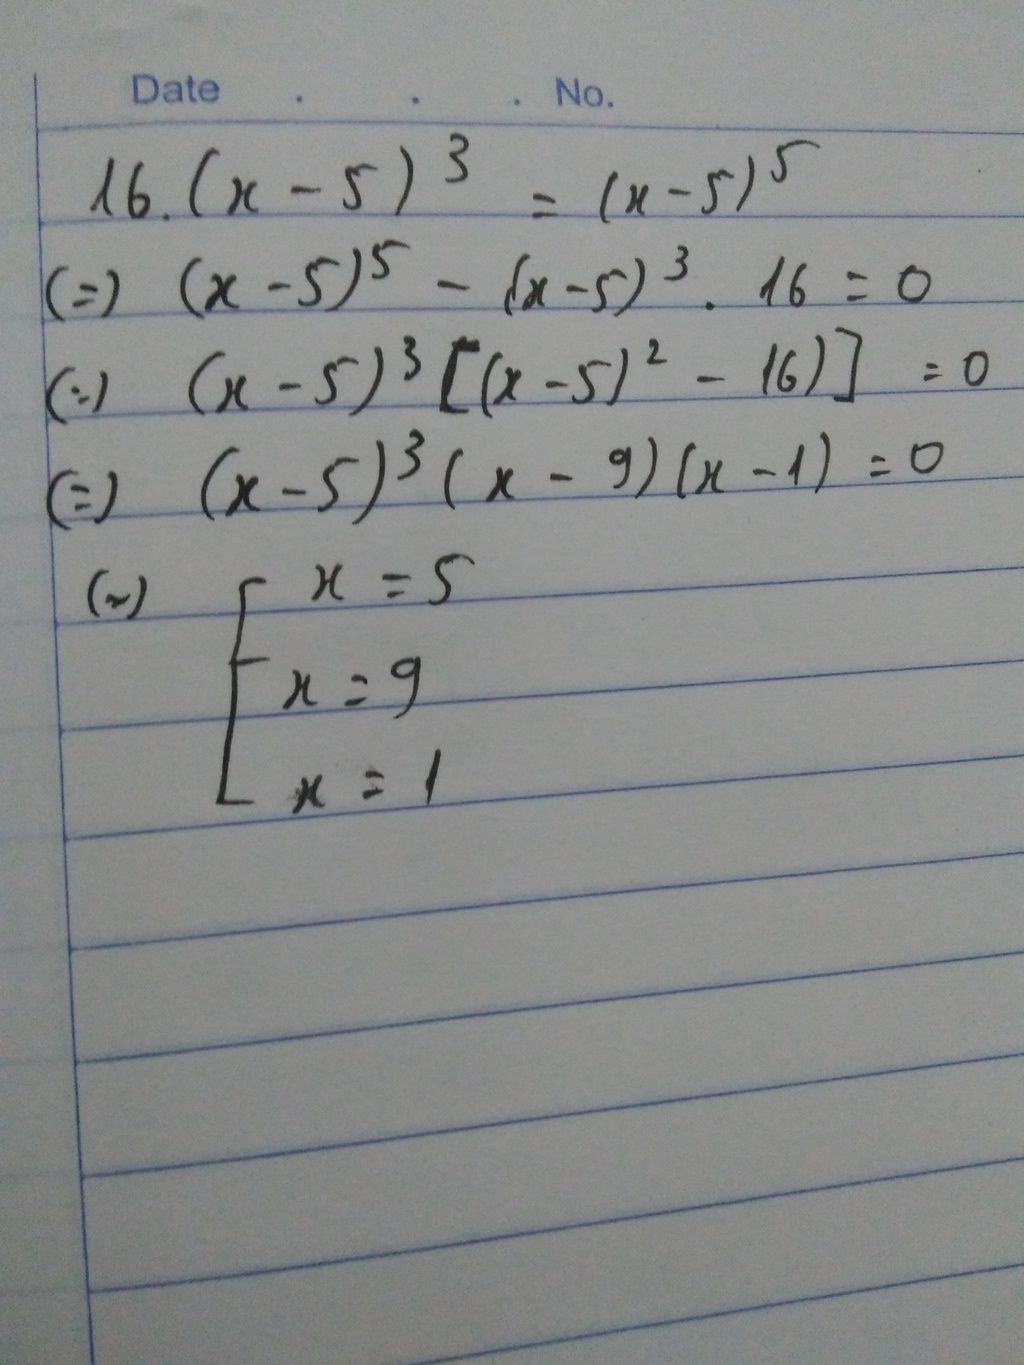 Date . . . No.
16.(x - 5)³ = (x - 5)⁵
(=) (x - 5)⁵ - (x - 5)³. 16 = 0
(=) (x - 5)³ [(x - 5)² - 16)] = 0
(=) (x - 5)³ (x - 9) (x - 1) = 0
(~) [ x = 5
x = 9
x = 1